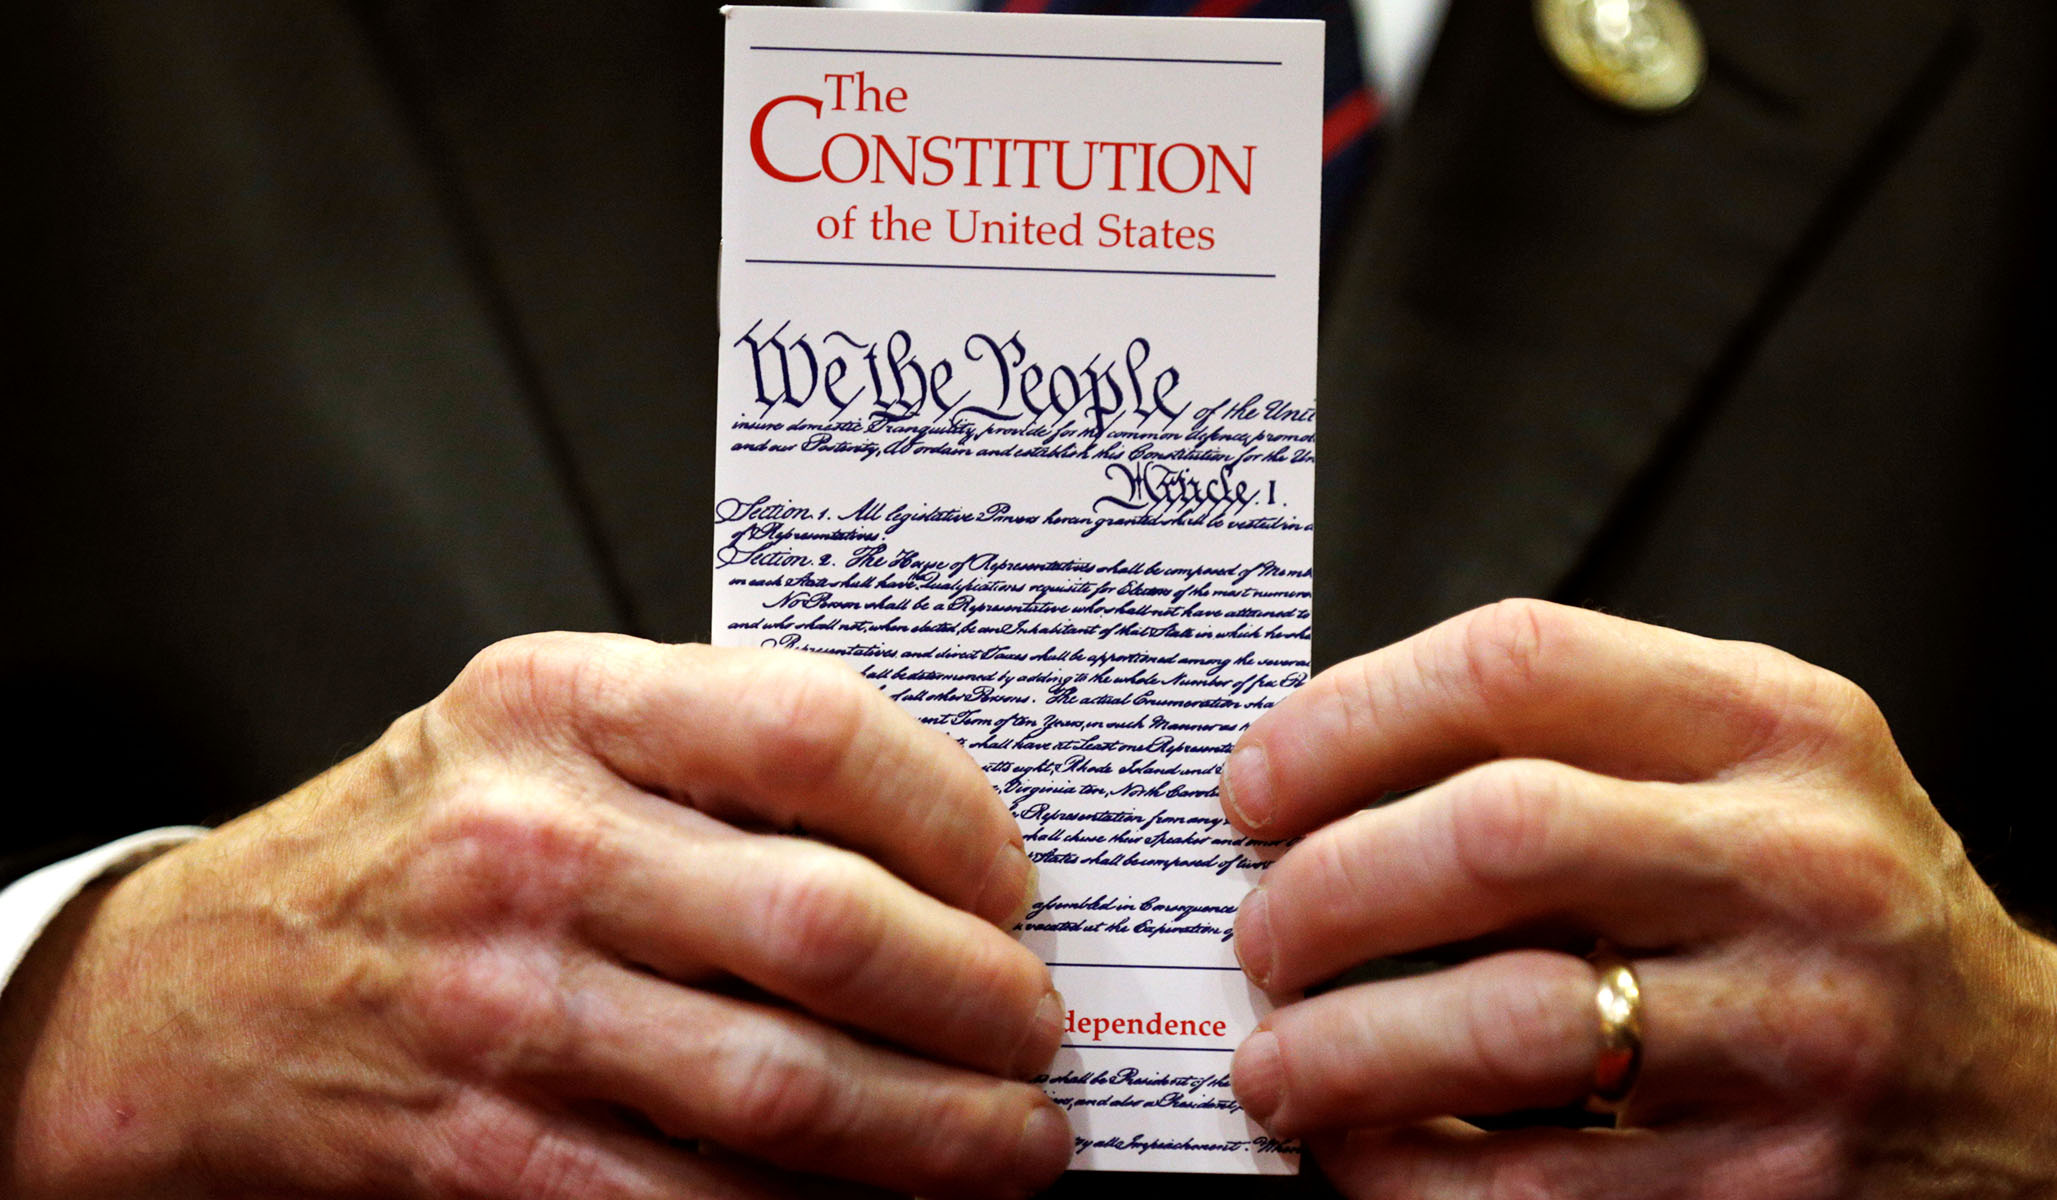 The
CONSTITUTION
of the United States
We the People of the Unit
insure domestic Tranquility, provide for the common defence, promot
and our Posterity, do ordain and establish this Constitution for the Un
Article. I.
Section. 1. All legislative Powers herein granted shall be vested in a
of Representatives.
Section. 2. The House of Representatives shall be composed of Memb
in each State shall have the Qualifications requisite for Electors of the most numero
No Person shall be a Representative who shall not have attained to
and who shall not, when elected, be an Inhabitant of that State in which he sha
Representatives and direct Taxes shall be apportioned among the severa
hall be determined by adding to the whole Number of free P
of all other Persons. The actual Enumeration sha
uent Term of ten Years, in such Manner as
shall have at Least one Representa
etts eight, Rhode Island and
Virginia ten, North Caroli
Representation from any
shall chuse their Speaker and other
States shall be composed of two
assembled in Consequence
vacated at the Expiration of
dependence
shall be President of the
and also a President
all Impeachments. When